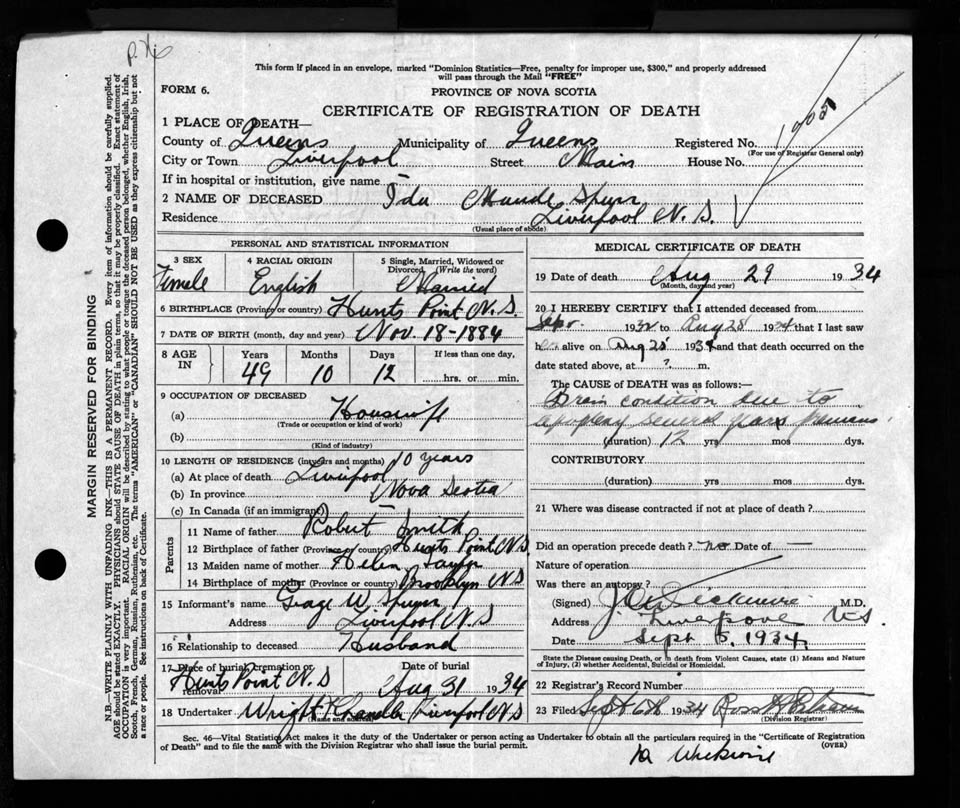 This form if placed in an envelope, marked "Dominion Statistics—Free, penalty for improper use, $300," and properly addressed
will pass through the Mail "FREE"
FORM 6.
PROVINCE OF NOVA SCOTIA
CERTIFICATE OF REGISTRATION OF DEATH
1 PLACE OF DEATH—
County of Queens Municipality of Queens Registered No.
(For use of Registrar General only)
City or Town Liverpool Street Main House No.
If in hospital or institution, give name
2 NAME OF DECEASED Ida Maude Spurr
Residence Liverpool N. S.
(Usual place of abode)
PERSONAL AND STATISTICAL INFORMATION
3 SEX Female
4 RACIAL ORIGIN English
5 Single, Married, Widowed or Divorced (Write the word) Married
6 BIRTHPLACE (Province or country) Hunts Point N.S.
7 DATE OF BIRTH (month, day and year) Nov. 18-1884
8 AGE IN Years 49 Months 10 Days 12 If less than one day, hrs. or min.
9 OCCUPATION OF DECEASED
(a) Housewife
(Trade or occupation or kind of work)
(b)
(Kind of industry)
10 LENGTH OF RESIDENCE (in years and months) 10 years
(a) At place of death Liverpool
(b) In province Nova Scotia
(c) In Canada (if an immigrant) —
Parents
11 Name of father Robert Smith
12 Birthplace of father (Province or country) Hunts Point N.S.
13 Maiden name of mother Helen
14 Birthplace of mother (Province or country) Brooklyn N S
15 Informant's name W. Spurr
Address Liverpool N.S
16 Relationship to deceased Husband
17 Place of burial, cremation or removal Hunts Point N.S Date of burial Aug 31 1934
18 Undertaker Wright Liverpool N.S
(Name and address)
MEDICAL CERTIFICATE OF DEATH
19 Date of death Aug 29 1934
(Month, day and year)
20 I HEREBY CERTIFY that I attended deceased from
1932 to Aug 28 1934 that I last saw
h alive on Aug 28 1934 and that death occurred on the
date stated above, at ? m.
The CAUSE OF DEATH was as follows:—
Brain condition due to
several years previous
(duration) 12 yrs mos dys.
CONTRIBUTORY
(duration) yrs. mos. dys.
21 Where was disease contracted if not at place of death?
Did an operation precede death? no Date of —
Nature of operation
Was there an autopsy?
(Signed) M.D.
Address Liverpool N.S.
Date Sept 5, 1934
State the Disease causing Death, or in death from Violent Causes, state (1) Means and Nature
of Injury, (2) whether Accidental, Suicidal or Homicidal.
22 Registrar's Record Number
23 Filed Sept 6th 1934 Ross
(Division Registrar)
Sec. 46—Vital Statistics Act makes it the duty of the Undertaker or person acting as Undertaker to obtain all the particulars required in the "Certificate of Registration
of Death" and to file the same with the Division Registrar who shall issue the burial permit.
(OVER)
MARGIN RESERVED FOR BINDING
N.B—WRITE PLAINLY WITH UNFADING INK—THIS IS A PERMANENT RECORD. Every item of information should be carefully supplied.
AGE should be stated EXACTLY. PHYSICIANS should STATE CAUSE OF DEATH in plain terms, so that it may be properly classified. Exact statement of
OCCUPATION is very important. RACIAL ORIGIN will be described by stating to what people or tongue the deceased person belonged, whether English, Irish,
Scotch, French, German, Russian, Ruthenian, etc. The terms "AMERICAN" or "CANADIAN" SHOULD NOT BE USED as they express citizenship but not
a race or people. See instructions on back of Certificate.